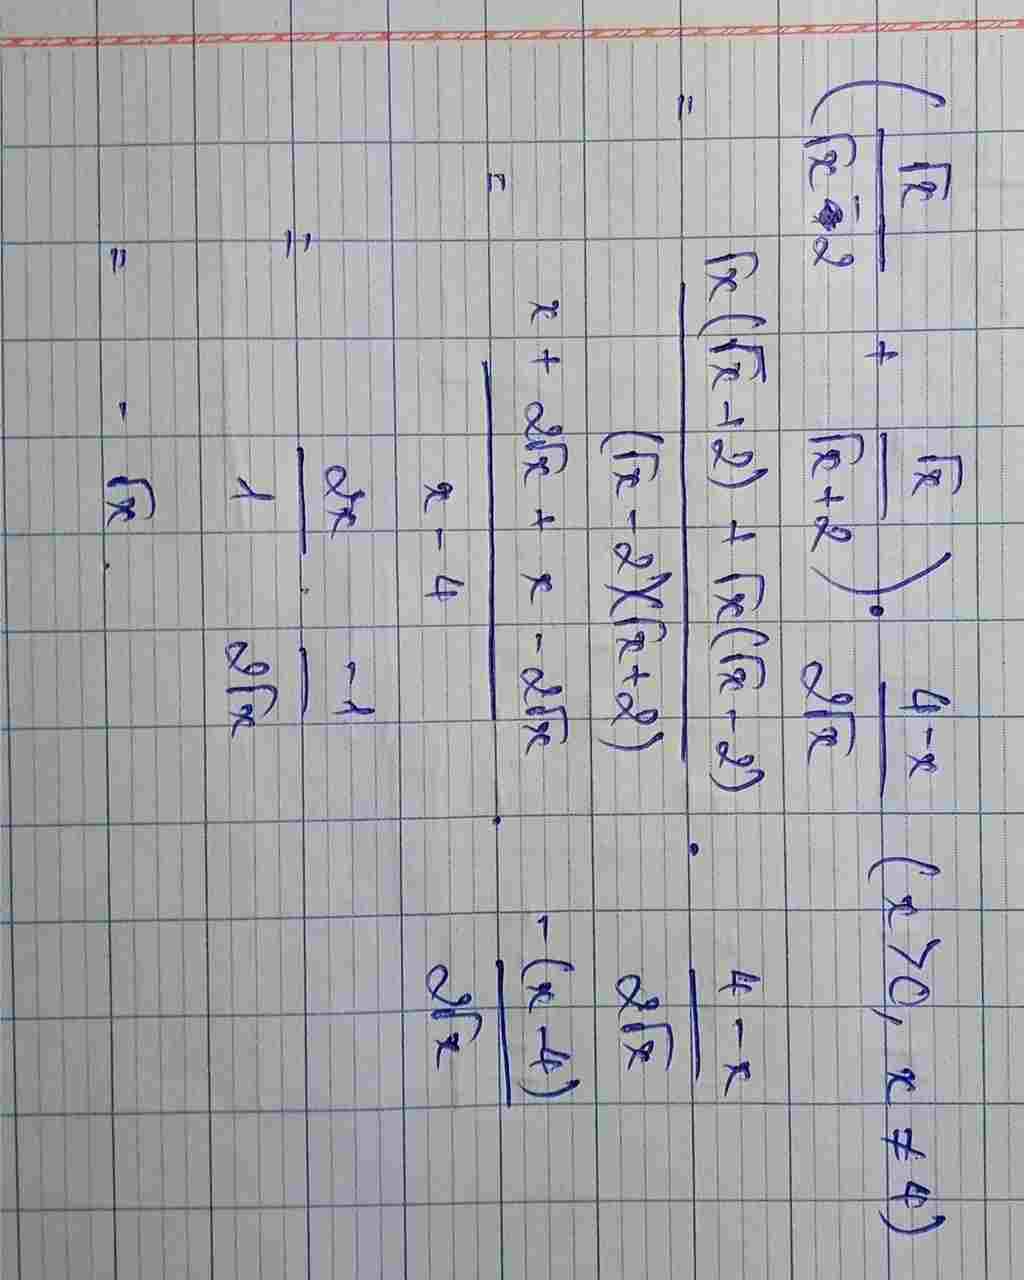 (√x/(√x - 2) + √x/(√x + 2)) · (4 - x)/(2√x) (x > 0, x ≠ 4)
= (√x(√x + 2) + √x(√x - 2))/((√x - 2)(√x + 2)) · (4 - x)/(2√x)
= (x + 2√x + x - 2√x)/(x - 4) · (-(x - 4))/(2√x)
= 2x/1 · (-1)/(2√x)
= - √x.